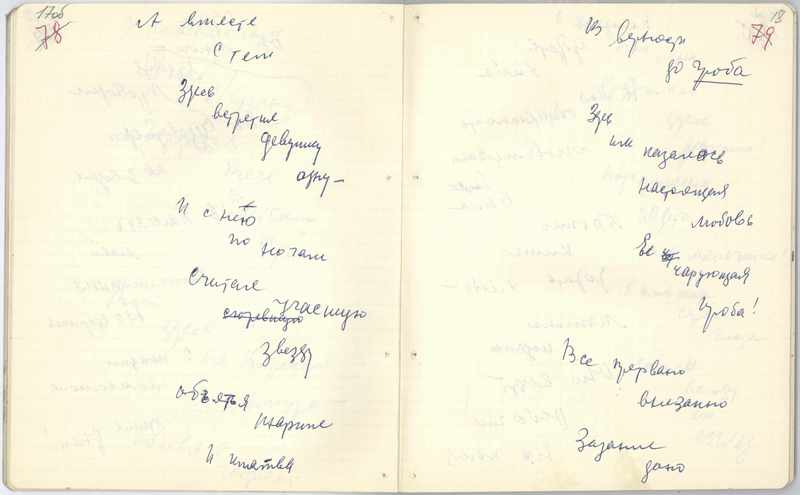 17об
78
А вместе
с тем
Здесь
встретил
девушку
одну —
И с нею
по ночам
считали
сгоревшую угасшую
звезду
объятья
жаркие
И клятвы
18
79
В верности
до гроба
Здесь
им казалось
настоящая
любовь
Ее
чарующая
проба!
Все прервано
внезапно
Задание
дано